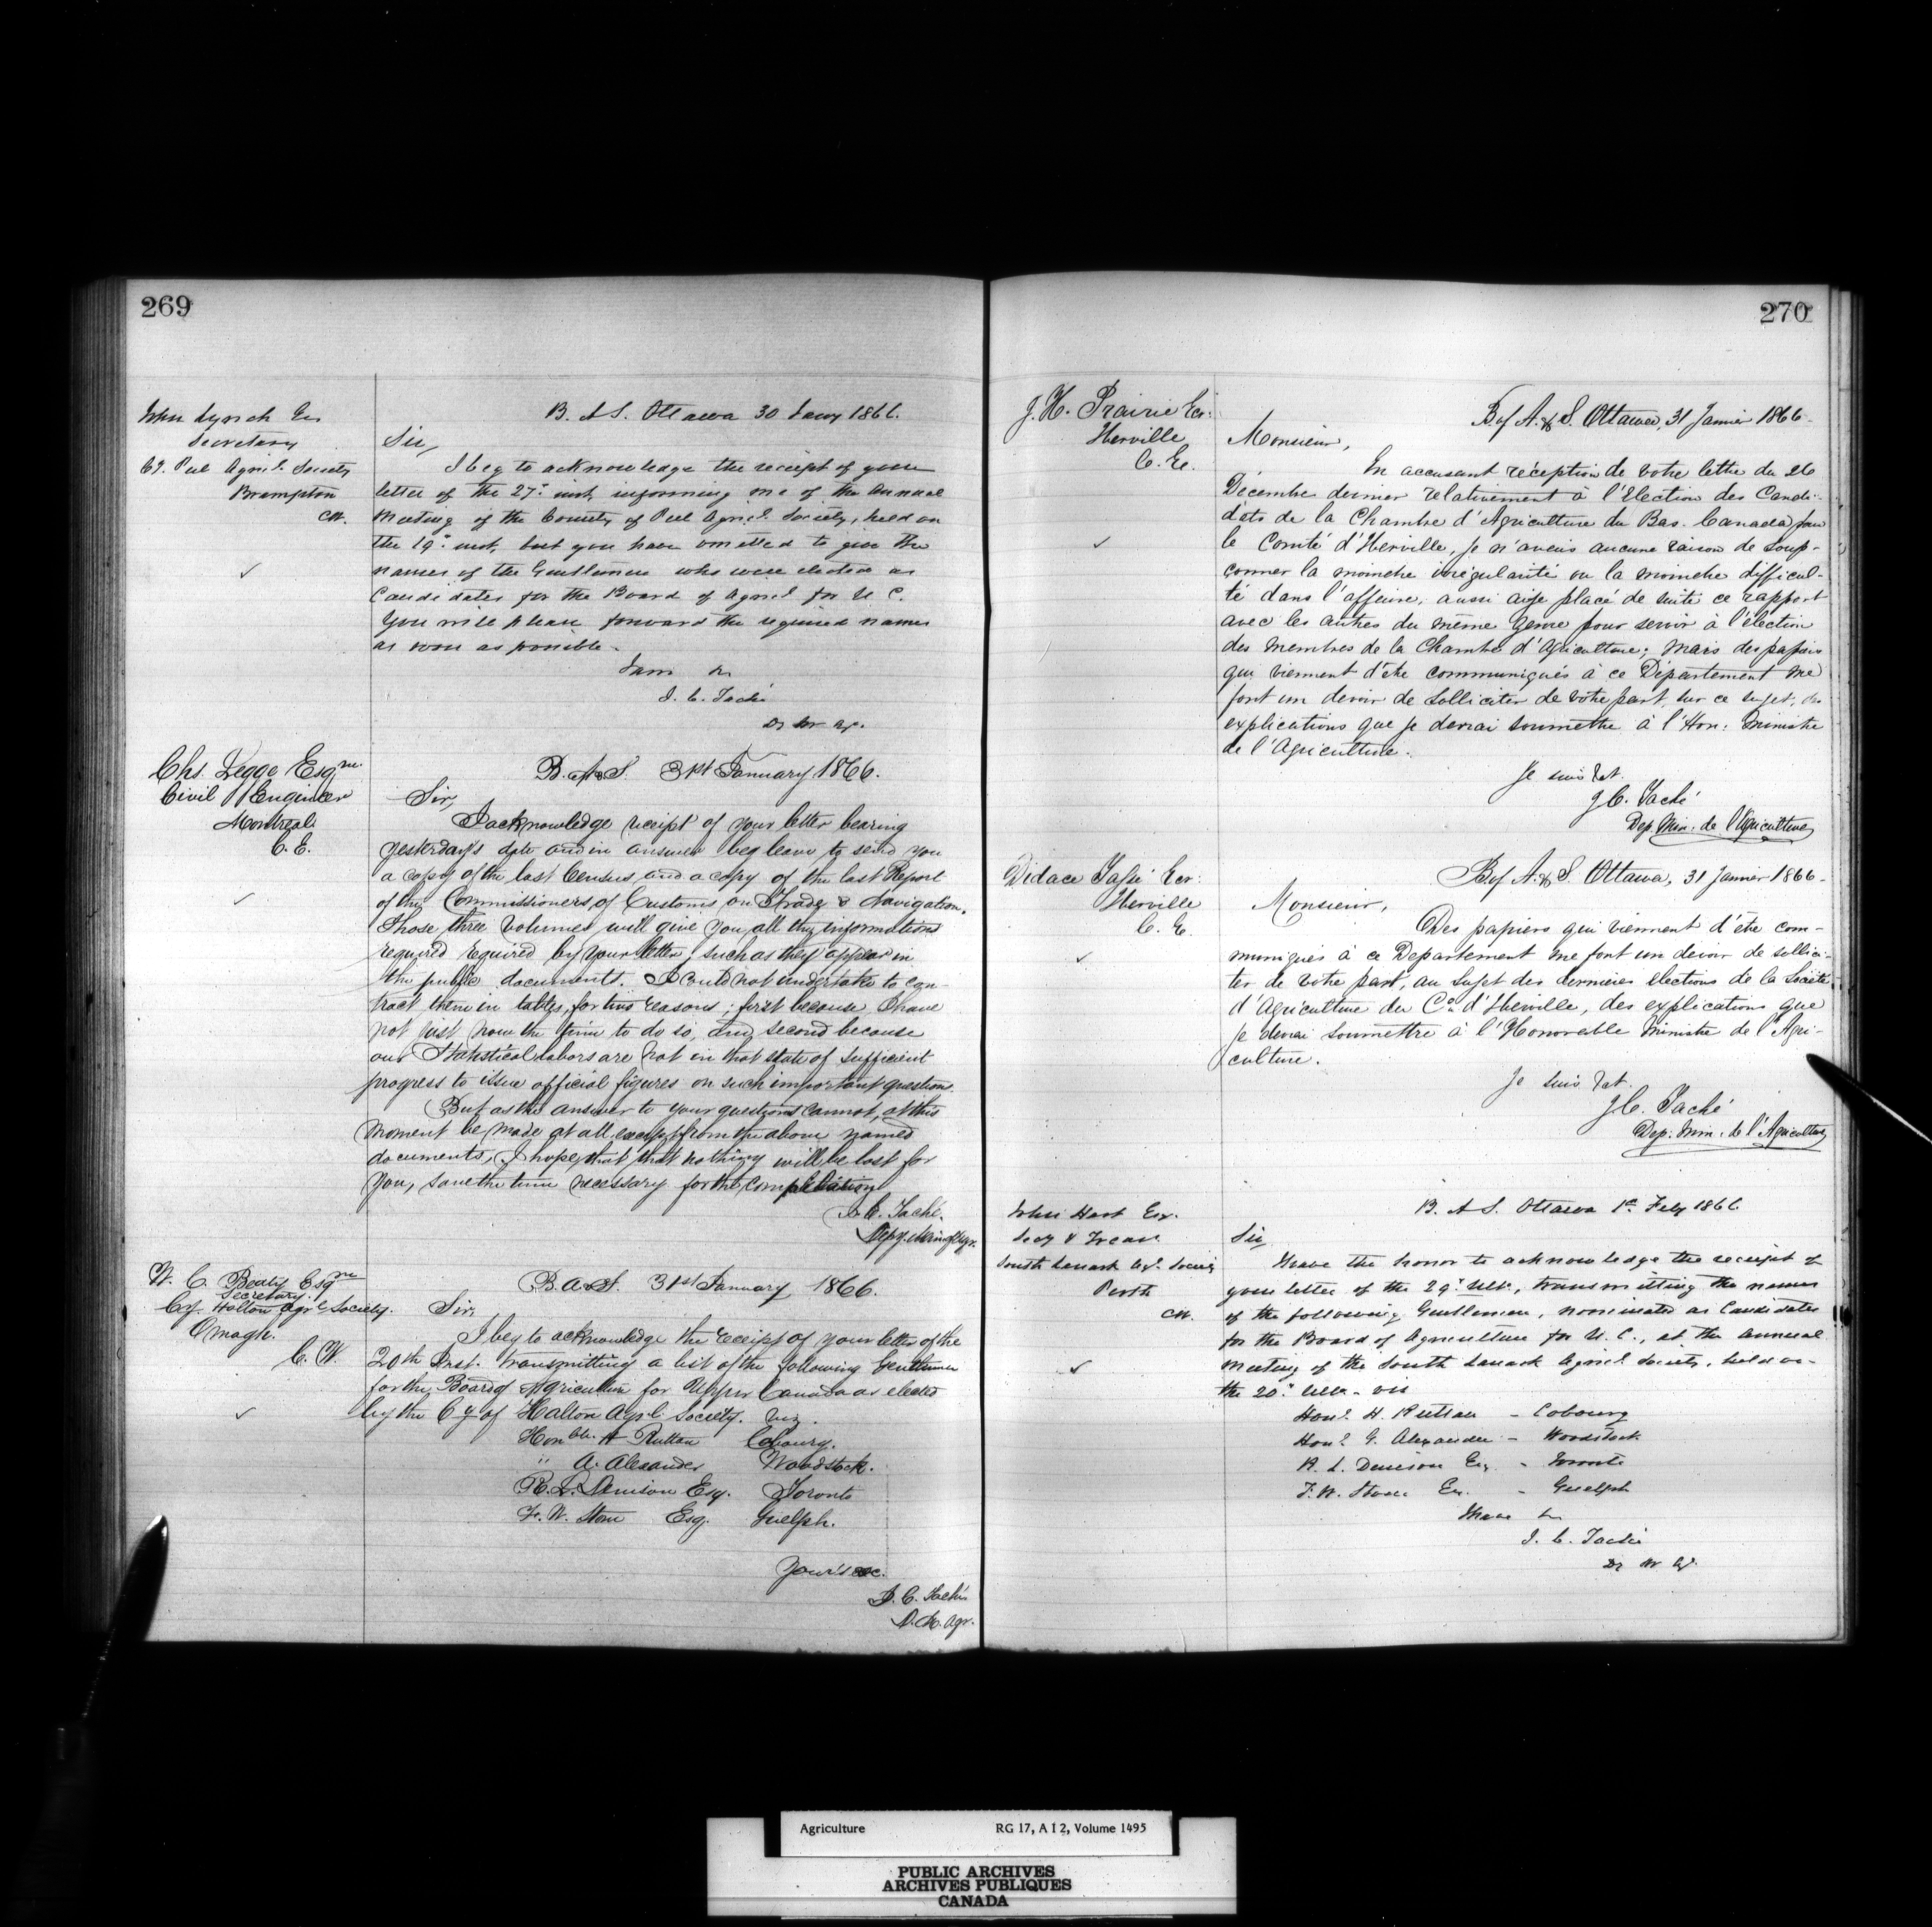 269
John Lynch Esq
Secretary
Cy. Peel Agricl. Society
Brampton
C.W.
B. A & S. Ottawa 30 Jany 1866.
Sir,
I beg to acknowledge the receipt of your
letter of the 27th inst, informing me of the Annual
Meeting of the County of Peel Agricl. Society, held on
the 19th inst, but you have omitted to give the
names of the Gentlemen who were elected as
Candidates for the Board of Agricl for U. C.
You will please forward the required names
as soon as possible.
I am &c
J. C. Taché
Dy Mr Ag.
Chs. Legge Esqre.
Civil Engineer
Montreal
C. E.
B. A & S. 31st January 1866.
Sir,
I acknowledge receipt of your letter bearing
yesterday's date and in answer beg leave to send you
a copy of the last Census and a copy of the last Report
of the Commissioners of Customs on Trade & Navigation.
Those three volumes will give you all the informations
required required by your letter, such as they appear in
the public documents. I could not undertake to con-
tract them in tables, for two reasons; first because I have
not just now the time to do so, and second because
our Statistical labors are not in that state of sufficient
progress to issue official figures on such important questions.
But as the answer to your questions cannot, at this
moment be made at all, except from the above named
documents, I hope, that that nothing will be lost for
you, save the time necessary for the compilation
J. C. Taché.
Depy. Min of Agr.
W. C. Beaty Esqre
Secretary.
Cy. Halton Agrl Society.
Omagh.
C. W.
B. A & S. 31st January 1866.
Sir,
I beg to acknowledge the receipt of your letter of the
20th Inst. transmitting a list of the following Gentlemen
for the Board of Agriculture for Upper Canada as elected
by the Cy of Halton Agrl. Society. viz.
Honble. H Ruttan Cobourg.
" A. Alexander Woodstock.
R. L. Denison Esq. Toronto
F. W. Stone Esq. Guelph.
Yours &c.
J. C. Taché
D. M. Agr.
270
J. H. Prairie Ecr.
Iberville
C. E.
B of A. & S. Ottawa, 31 Janvier 1866.
Monsieur,
En accusant réception de votre lettre du 26
Décembre dernier relativement à l'Election des Candi-
dats de la Chambre d'Agriculture du Bas. Canada pour
le Comté d'Iberville, je n'avais aucune raison de soup-
çonner la moindre irrégularité ou la moindre difficul-
té dans l'affaire, aussi ai-je placé de suite ce rapport
avec les autres du même genre pour servir à l'élection
des membres de la Chambre d'Agriculture; mais des papiers
qui viennent d'être communiqués à ce Département me
font un devoir de solliciter de votre part, sur ce sujet, des
explications que je devrai soumettre à l'Hon: Ministre
de l'Agriculture.
Je suis &ct.
J C. Taché
Dep. Min: de l'Agriculture
Didace Tassé Ecr:
Iberville
C. E.
B of A. & S. Ottawa, 31 Janvier 1866.
Monsieur,
Des papiers qui viennent d'être com-
muniqués à ce Departement me font un devoir de sollici-
ter de votre part, au sujet des dernières élections de la Société
d'Agriculture du Co. d'Iberville, des explications que
je devrai soumettre à l'Honorable Ministre de l'Agri-
culture.
Je suis &ct.
J C. Taché
Dep: Min: de l'Agriculture
John Hart Esq.
Secy & Treas
South Lanark Agl. Society
Perth
C.W.
B. A & S. Ottawa 1st Feby 1866
Sir,
I have the honor to acknowledge the receipt of
your letter of the 29th Ult., transmitting the names
of the following Gentlemen, nominated as Candidates
for the Board of Agriculture for U. C., at the annual
Meeting of the South Lanark Agricl Society, held on
the 20th Ult. - vis
Honl. H. Ruttan - Cobourg
Honl. G. Alexander - Woodstock
R. L. Denison Esq - Toronto
F. W. Stone Esq. - Guelph
I have &c
J. C. Taché
Dy Mr Ag.
Agriculture RG 17, A I 2, Volume 1495
PUBLIC ARCHIVES
ARCHIVES PUBLIQUES
CANADA